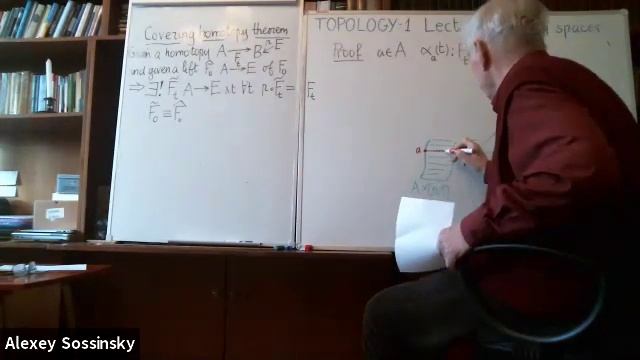 Covering homotopy theorem
Given a homotopy A → B ← E
F_t
and given a lift F̂_0 A → E of F_0
⇒ ∃! F̃_t A → E s.t ∀t p∘F̃_t = F_t
F̃_0 ≡ F̂_0
TOPOLOGY-1 Lect spaces
Proof a∈A α_a(t):
a
Alexey Sossinsky